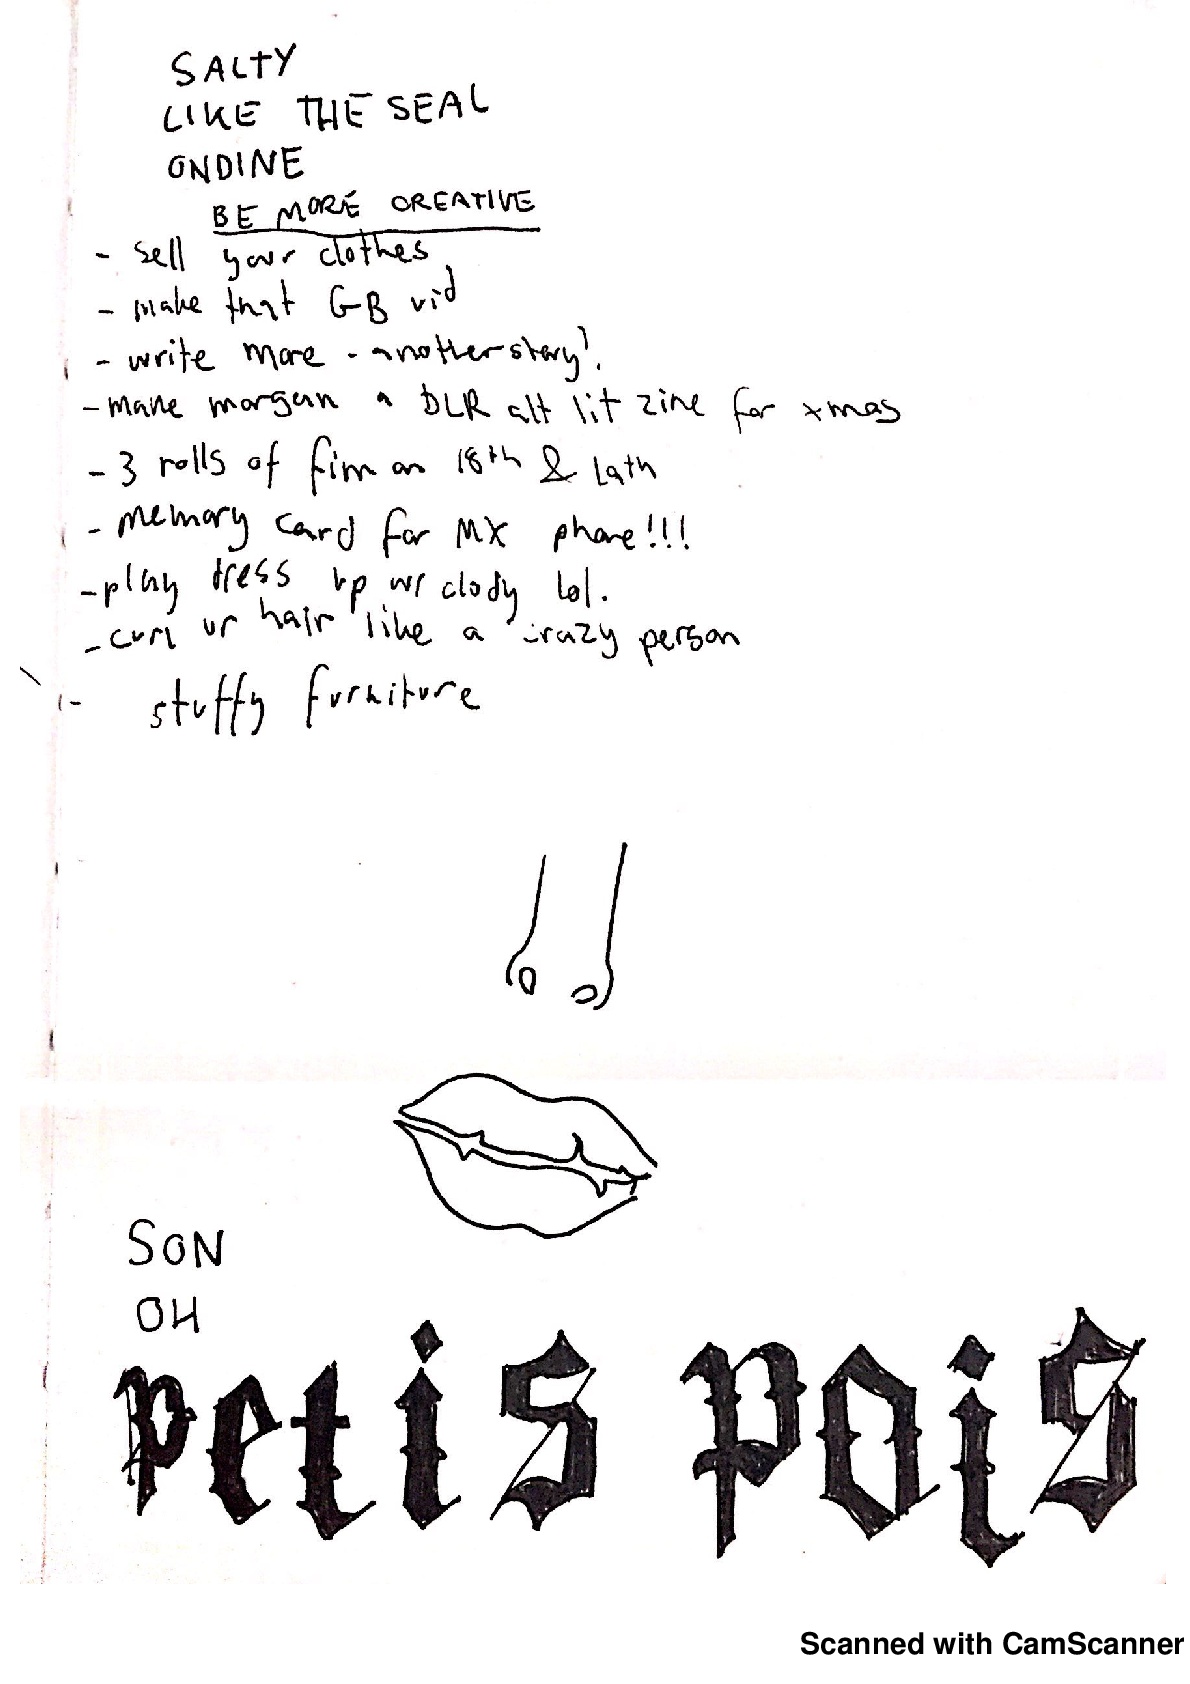 SALTY
LIKE THE SEAL
ONDINE
BE MORE CREATIVE
- sell your clothes
- make that GB vid
- write more - another story?
- make morgan a DLR alt lit zine for xmas
- 3 rolls of fim on 18th &
- memory card for MX phone!!!
- play dress up w/ clody lol.
- curl ur hair like a crazy person
- stuffy furniture
SON
OH
petis pois
Scanned with CamScanner